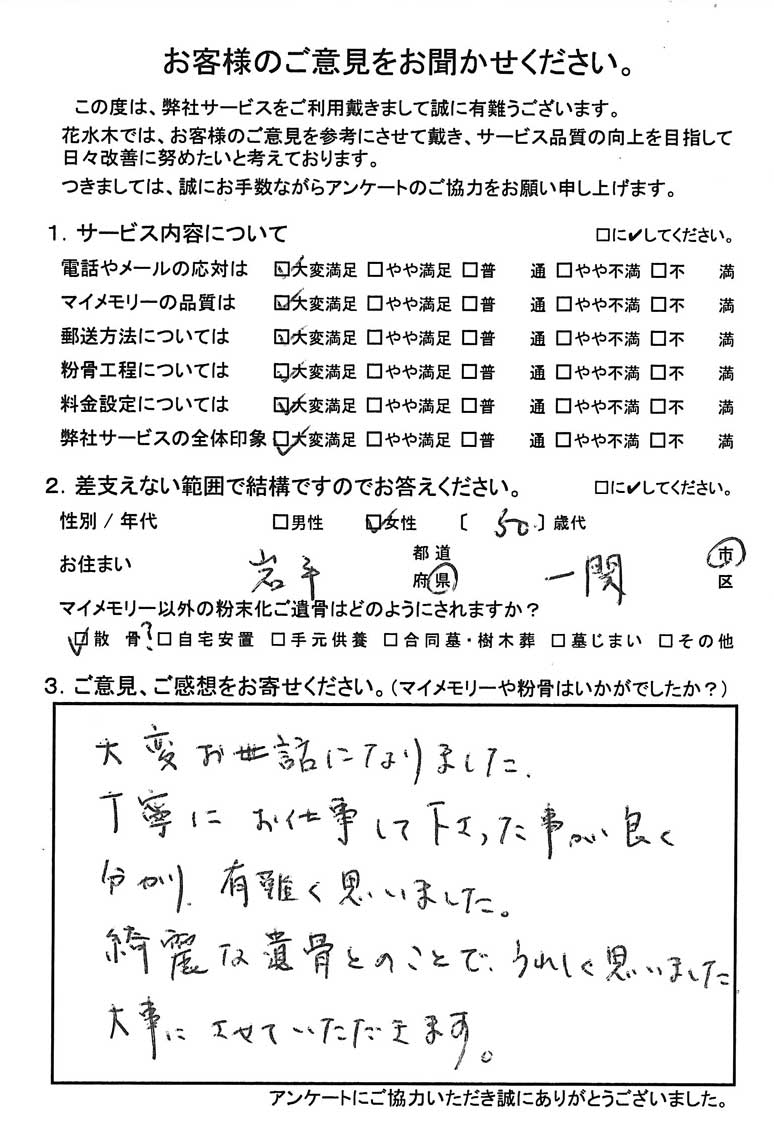 お客様のご意見をお聞かせください。
この度は、弊社サービスをご利用戴きまして誠に有難うございます。
花水木では、お客様のご意見を参考にさせて戴き、サービス品質の向上を目指して
日々改善に努めたいと考えております。
つきましては、誠にお手数ながらアンケートのご協力をお願い申し上げます。
1．サービス内容について □に✔してください。
電話やメールの応対は ☑大変満足 □やや満足 □普 通 □やや不満 □不 満
マイメモリーの品質は ☑大変満足 □やや満足 □普 通 □やや不満 □不 満
郵送方法については ☑大変満足 □やや満足 □普 通 □やや不満 □不 満
粉骨工程については ☑大変満足 □やや満足 □普 通 □やや不満 □不 満
料金設定については ☑大変満足 □やや満足 □普 通 □やや不満 □不 満
弊社サービスの全体印象 ☑大変満足 □やや満足 □普 通 □やや不満 □不 満
2．差支えない範囲で結構ですのでお答えください。 □に✔してください。
性別 / 年代 □男性 ☑女性 〔 50 〕歳代
お住まい 岩手 都道府県 一関 市区
マイメモリー以外の粉末化ご遺骨はどのようにされますか？
☑散 骨? □自宅安置 □手元供養 □合同墓・樹木葬 □墓じまい □その他
3．ご意見、ご感想をお寄せください。（マイメモリーや粉骨はいかがでしたか？）
大変お世話になりました。
丁寧にお仕事して下さった事が良く
分かり、有難く思いました。
綺麗な遺骨とのことで、うれしく思いました
大事にさせていただきます。
アンケートにご協力いただき誠にありがとうございました。